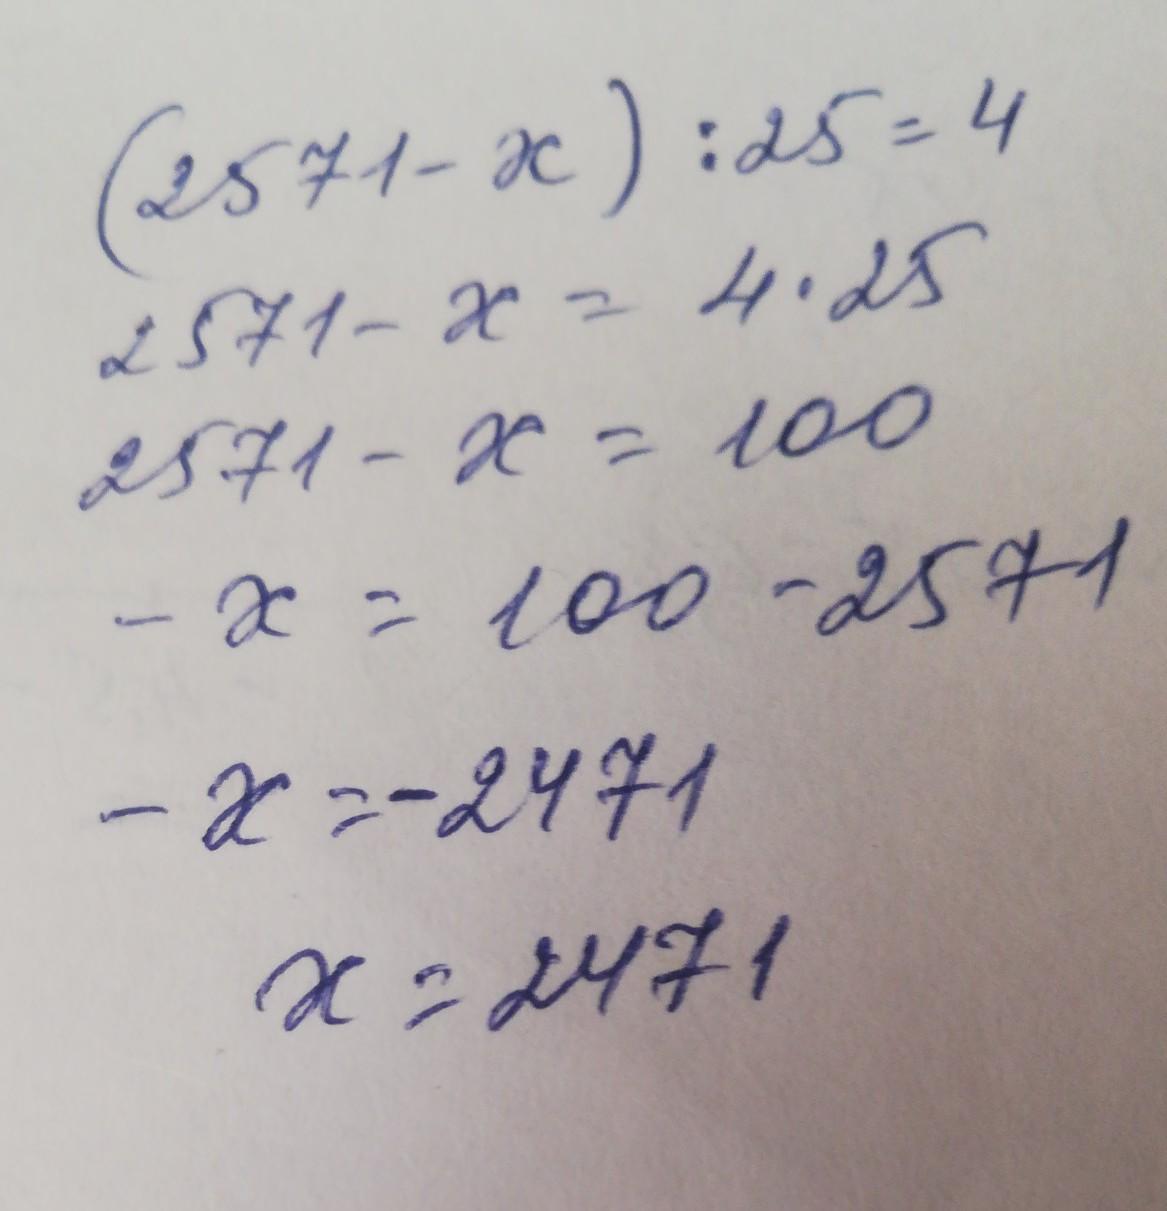 (2571 - x) : 25 = 4
2571 - x = 4 · 25
2571 - x = 100
- x = 100 - 2571
- x = -2471
x = 2471